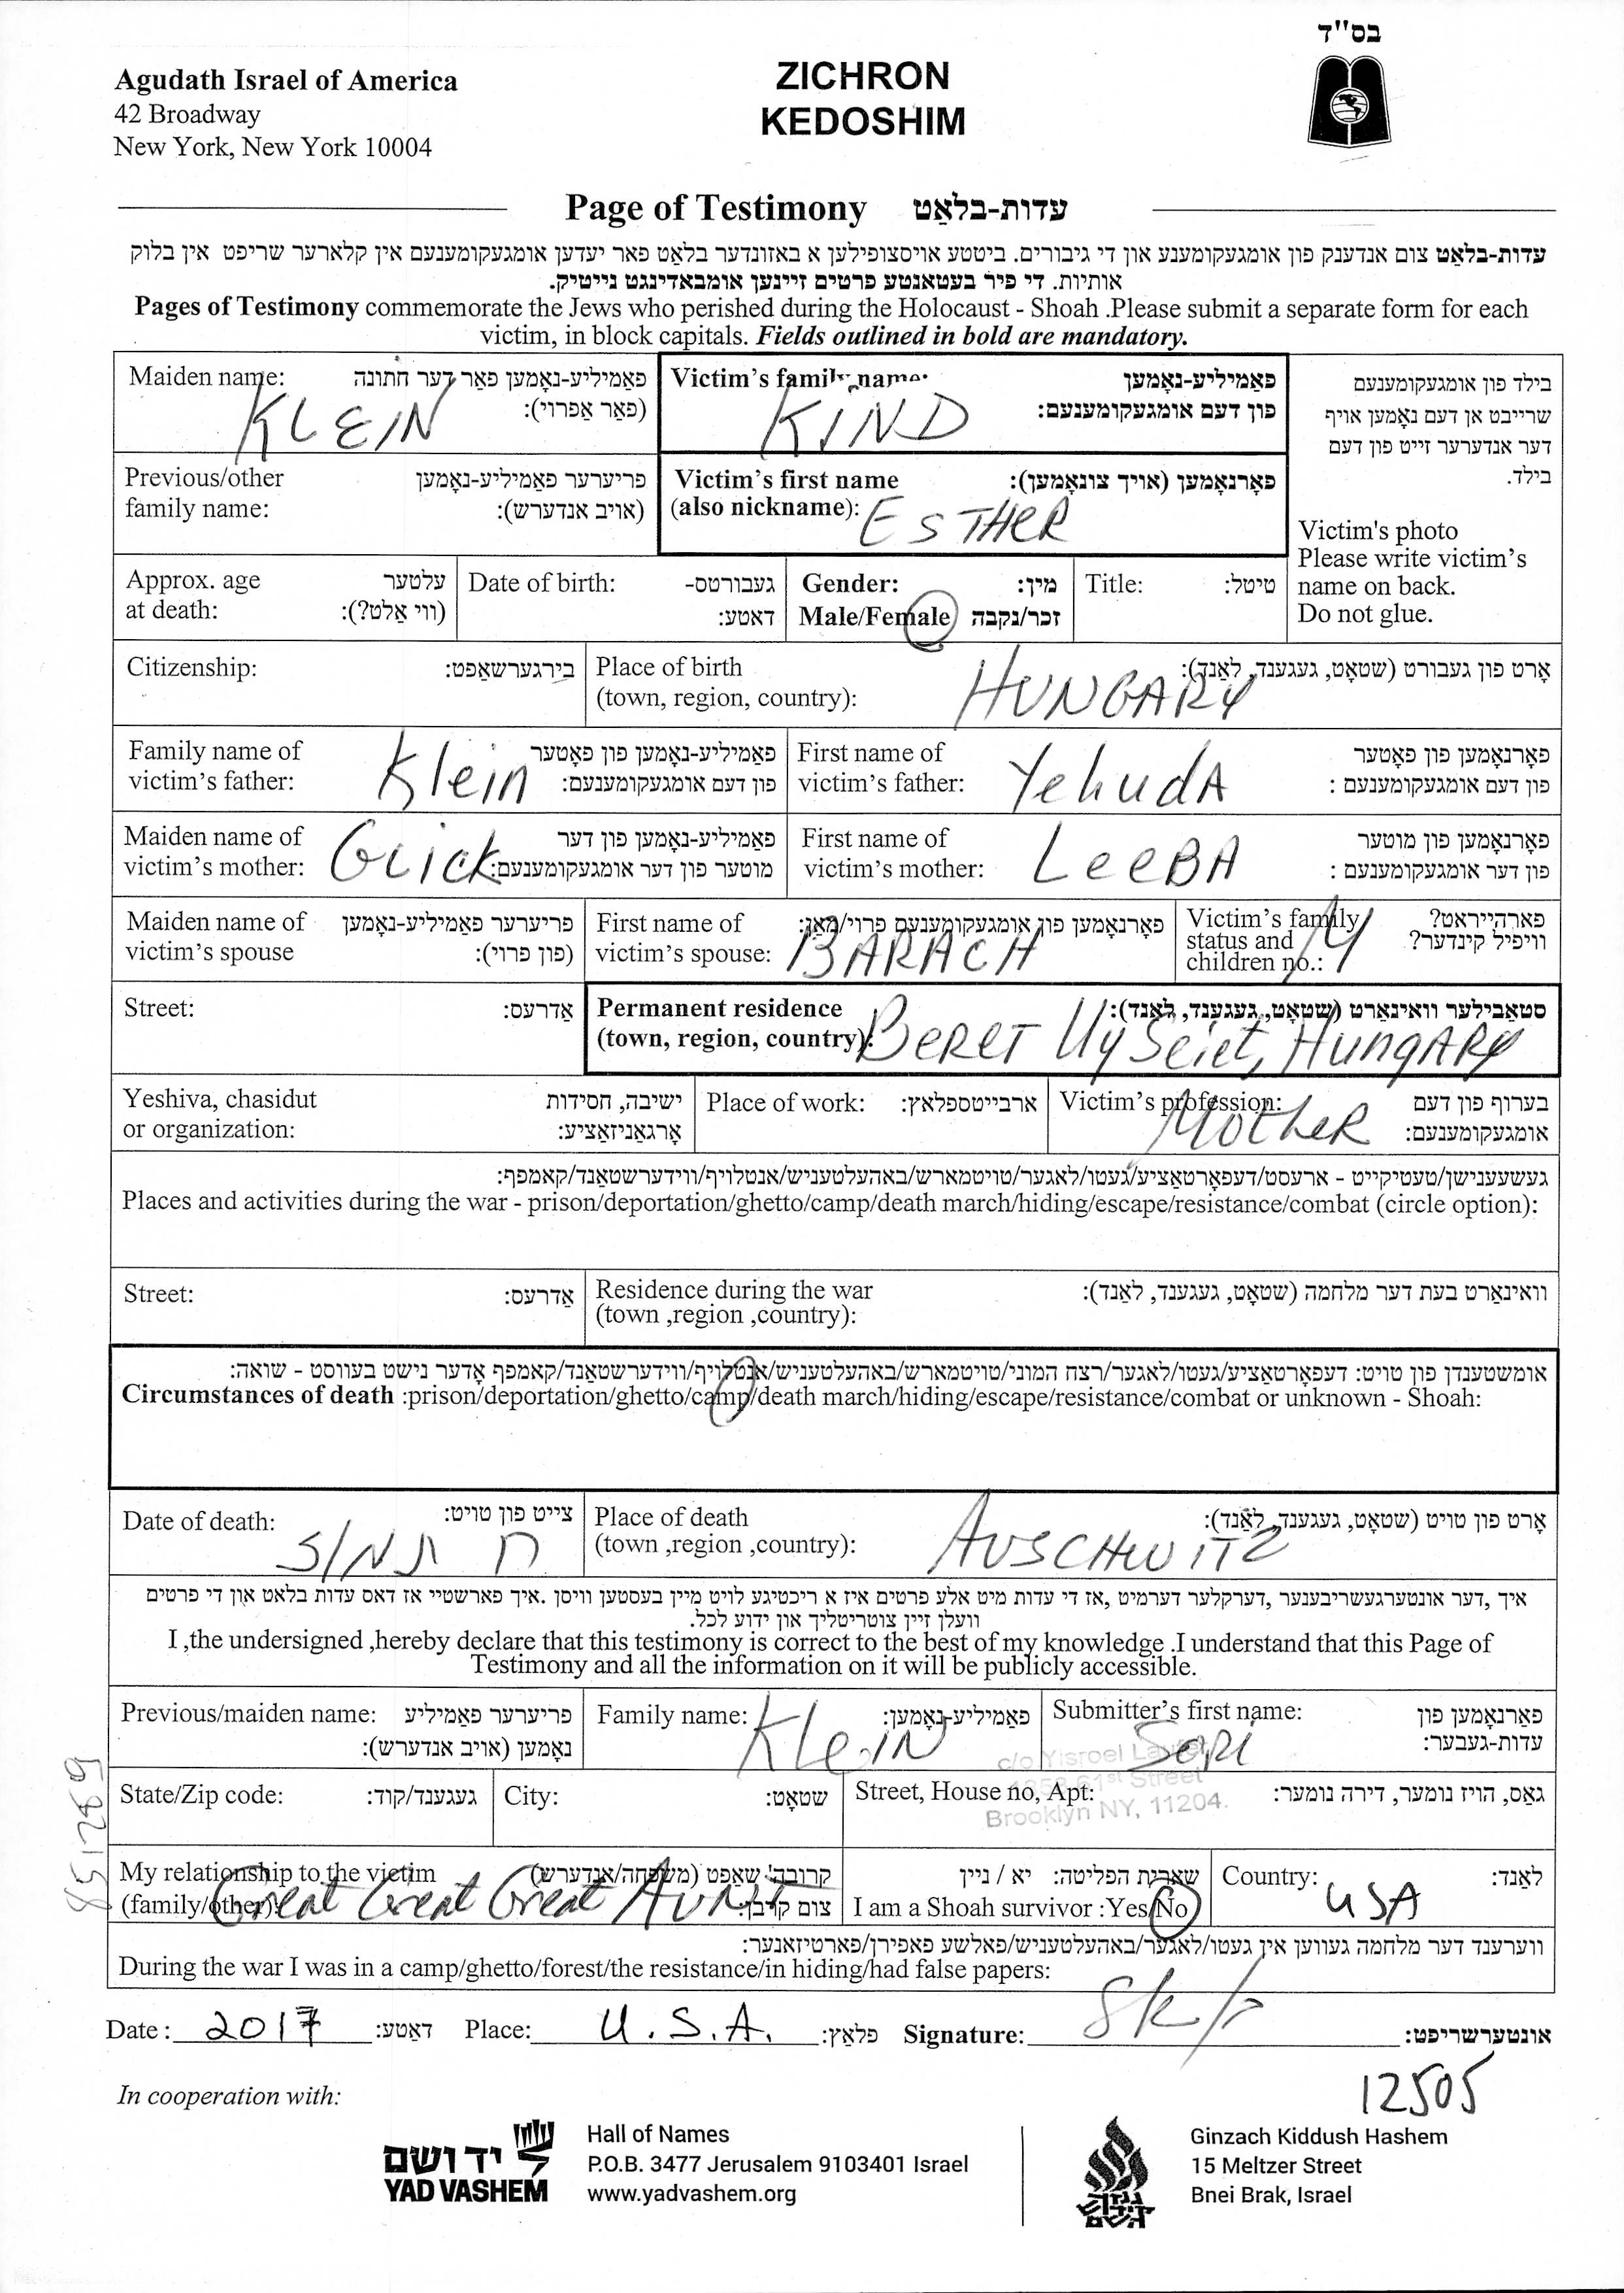 בס"ד
Agudath Israel of America
42 Broadway
New York, New York 10004
ZICHRON
KEDOSHIM
Page of Testimony עדות-בלאַט
עדות-בלאַט צום אנדענק פון אומגעקומענע און די גיבורים. ביטע אויסצופילען א באזונדער בלאט פאר יעדען אומגעקומענעם אין קלארער שריפט אין בלוק
אותיות. די פיר בעטאנטע פרטים זיינען אומבאדינגט נייטיק.
Pages of Testimony commemorate the Jews who perished during the Holocaust - Shoah .Please submit a separate form for each
victim, in block capitals. Fields outlined in bold are mandatory.
Maiden name: פאַמיליע-נאָמען פאַר דער חתונה
(פאַר אַפרוי):
KLEIN
Victim's family name: פאַמיליע-נאָמען
פון דעם אומגעקומענעם:
KIND
בילד פון אומגעקומענעם
שרייבט אן דעם נאָמען אויף
דער אנדערער זייט פון דעם
בילד.
Victim's photo
Please write victim's
name on back.
Do not glue.
Previous/other פריערער פאַמיליע-נאָמען
family name: (אויב אנדערש):
Victim's first name פאָרנאָמען (אויך צונאָמען):
(also nickname): ESTHER
Approx. age עלטער
at death: (ווי אַלט?):
Date of birth: געבורטס-
דאטע:
Gender: מין:
Male/Female זכר/נקבה
Title: טיטל:
Citizenship: בירגערשאַפט:
Place of birth אָרט פון געבורט (שטאָט, געגענד, לאַנד):
(town, region, country): HUNGARY
Family name of פאַמיליע-נאָמען פון פאָטער
victim's father: Klein פון דעם אומגעקומענעם:
First name of פאָרנאָמען פון פאָטער
victim's father: YehudA פון דעם אומגעקומענעם :
Maiden name of פאַמיליע-נאָמען פון דער
victim's mother: Glick מוטער פון דער אומגעקומענעם:
First name of פאָרנאָמען פון מוטער
victim's mother: LeeBA פון דער אומגעקומענעם :
Maiden name of פריערער פאַמיליע-נאָמען
victim's spouse (פון פרוי):
First name of פאָרנאָמען פון אומגעקומענעם פרוי/מאַן:
victim's spouse: BARACH
Victim's family פארהייראט?
status and וויפיל קינדער?
children no.:
Street: אַדרעס:
Permanent residence סטאַבילער וואוינאָרט (שטאָט, געגענד, לאַנד):
(town, region, country): BERET Uy Seiet, HungARy
Yeshiva, chasidut ישיבה, חסידות
or organization: אָרגאַניזאַציע:
Place of work: ארבייטספלאץ:
Victim's profession: בערוף פון דעם
אומגעקומענעם:
MotheR
געשעענישן/טעטיקייט - ארעסט/דעפאָרטאַציע/געטו/לאגער/טויטמארש/באהעלטעניש/אנטלויף/ווידערשטאַנד/קאמפף:
Places and activities during the war - prison/deportation/ghetto/camp/death march/hiding/escape/resistance/combat (circle option):
Street: אַדרעס:
Residence during the war וואוינאָרט בעת דער מלחמה (שטאָט, געגענד, לאַנד):
(town ,region ,country):
אומשטענדן פון טויט: דעפאָרטאַציע/געטו/לאגער/רצח המוני/טויטמארש/באהעלטעניש/אנטלויף/ווידערשטאַנד/קאמפף אָדער נישט בעוווסט - שואה:
Circumstances of death :prison/deportation/ghetto/camp/death march/hiding/escape/resistance/combat or unknown - Shoah:
Date of death: צייט פון טויט:
Place of death אָרט פון טויט (שטאָט, געגענד, לאַנד):
(town ,region ,country): AUSCHWITZ
איך ,דער אונטערגעשריבענער ,דערקלער דערמיט ,אז די עדות מיט אלע פרטים איז א ריכטיגע לויט מיין בעסטען וויסן .איך פארשטיי אז דאס עדות בלאט און די פרטים
וועלן זיין צוטריטליך און ידוע לכל.
I ,the undersigned ,hereby declare that this testimony is correct to the best of my knowledge .I understand that this Page of
Testimony and all the information on it will be publicly accessible.
Previous/maiden name: פריערער פאַמיליע
נאָמען (אויב אנדערש):
Family name: פאַמיליע-נאָמען:
KleiN
Submitter's first name: פאָרנאָמען פון
עדות-געבער:
Sori
c/o Yisroel
1358 61st Street
Brooklyn NY, 11204.
State/Zip code: געגענד/קוד:
City: שטאָט:
Street, House no, Apt: גאַס, הויז נומער, דירה נומער:
8512869
My relationship to the victim קרובה'שאַפט (משפחה/אנדערש)
(family/other): צום קרבן:
Great Great Great AUNT
שארית הפליטה: יא / ניין
I am a Shoah survivor :Yes/No
Country: לאַנד:
USA
ווערענד דער מלחמה געווען אין געטו/לאגער/באהעלטעניש/פאלשע פאפירן/פארטיזאנער:
During the war I was in a camp/ghetto/forest/the resistance/in hiding/had false papers:
Date : 2017 דאַטע: Place: U.S.A. פלאַץ: Signature: אונטערשריפט:
12505
In cooperation with:
יד ושם
YAD VASHEM
Hall of Names
P.O.B. 3477 Jerusalem 9103401 Israel
www.yadvashem.org
גנזך קידוש השם
Ginzach Kiddush Hashem
15 Meltzer Street
Bnei Brak, Israel